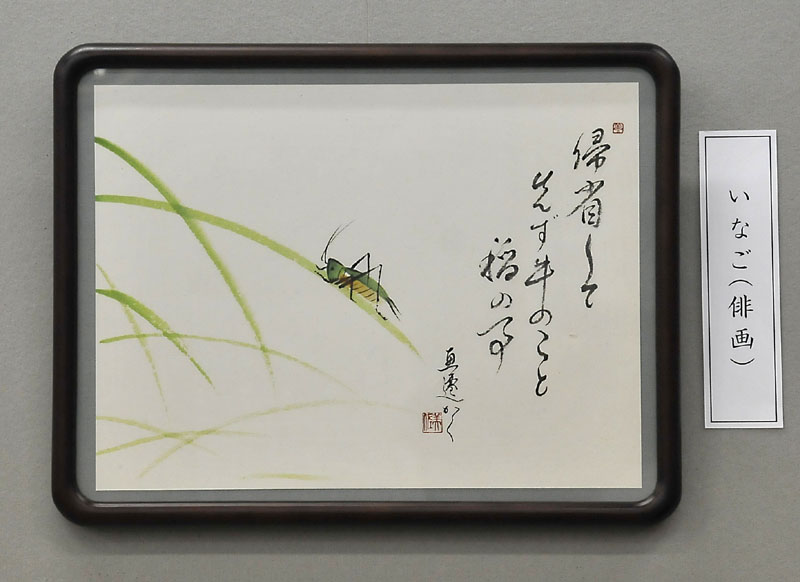 いなご(俳画)
帰省して
先ず牛のこと
稲の事
かく